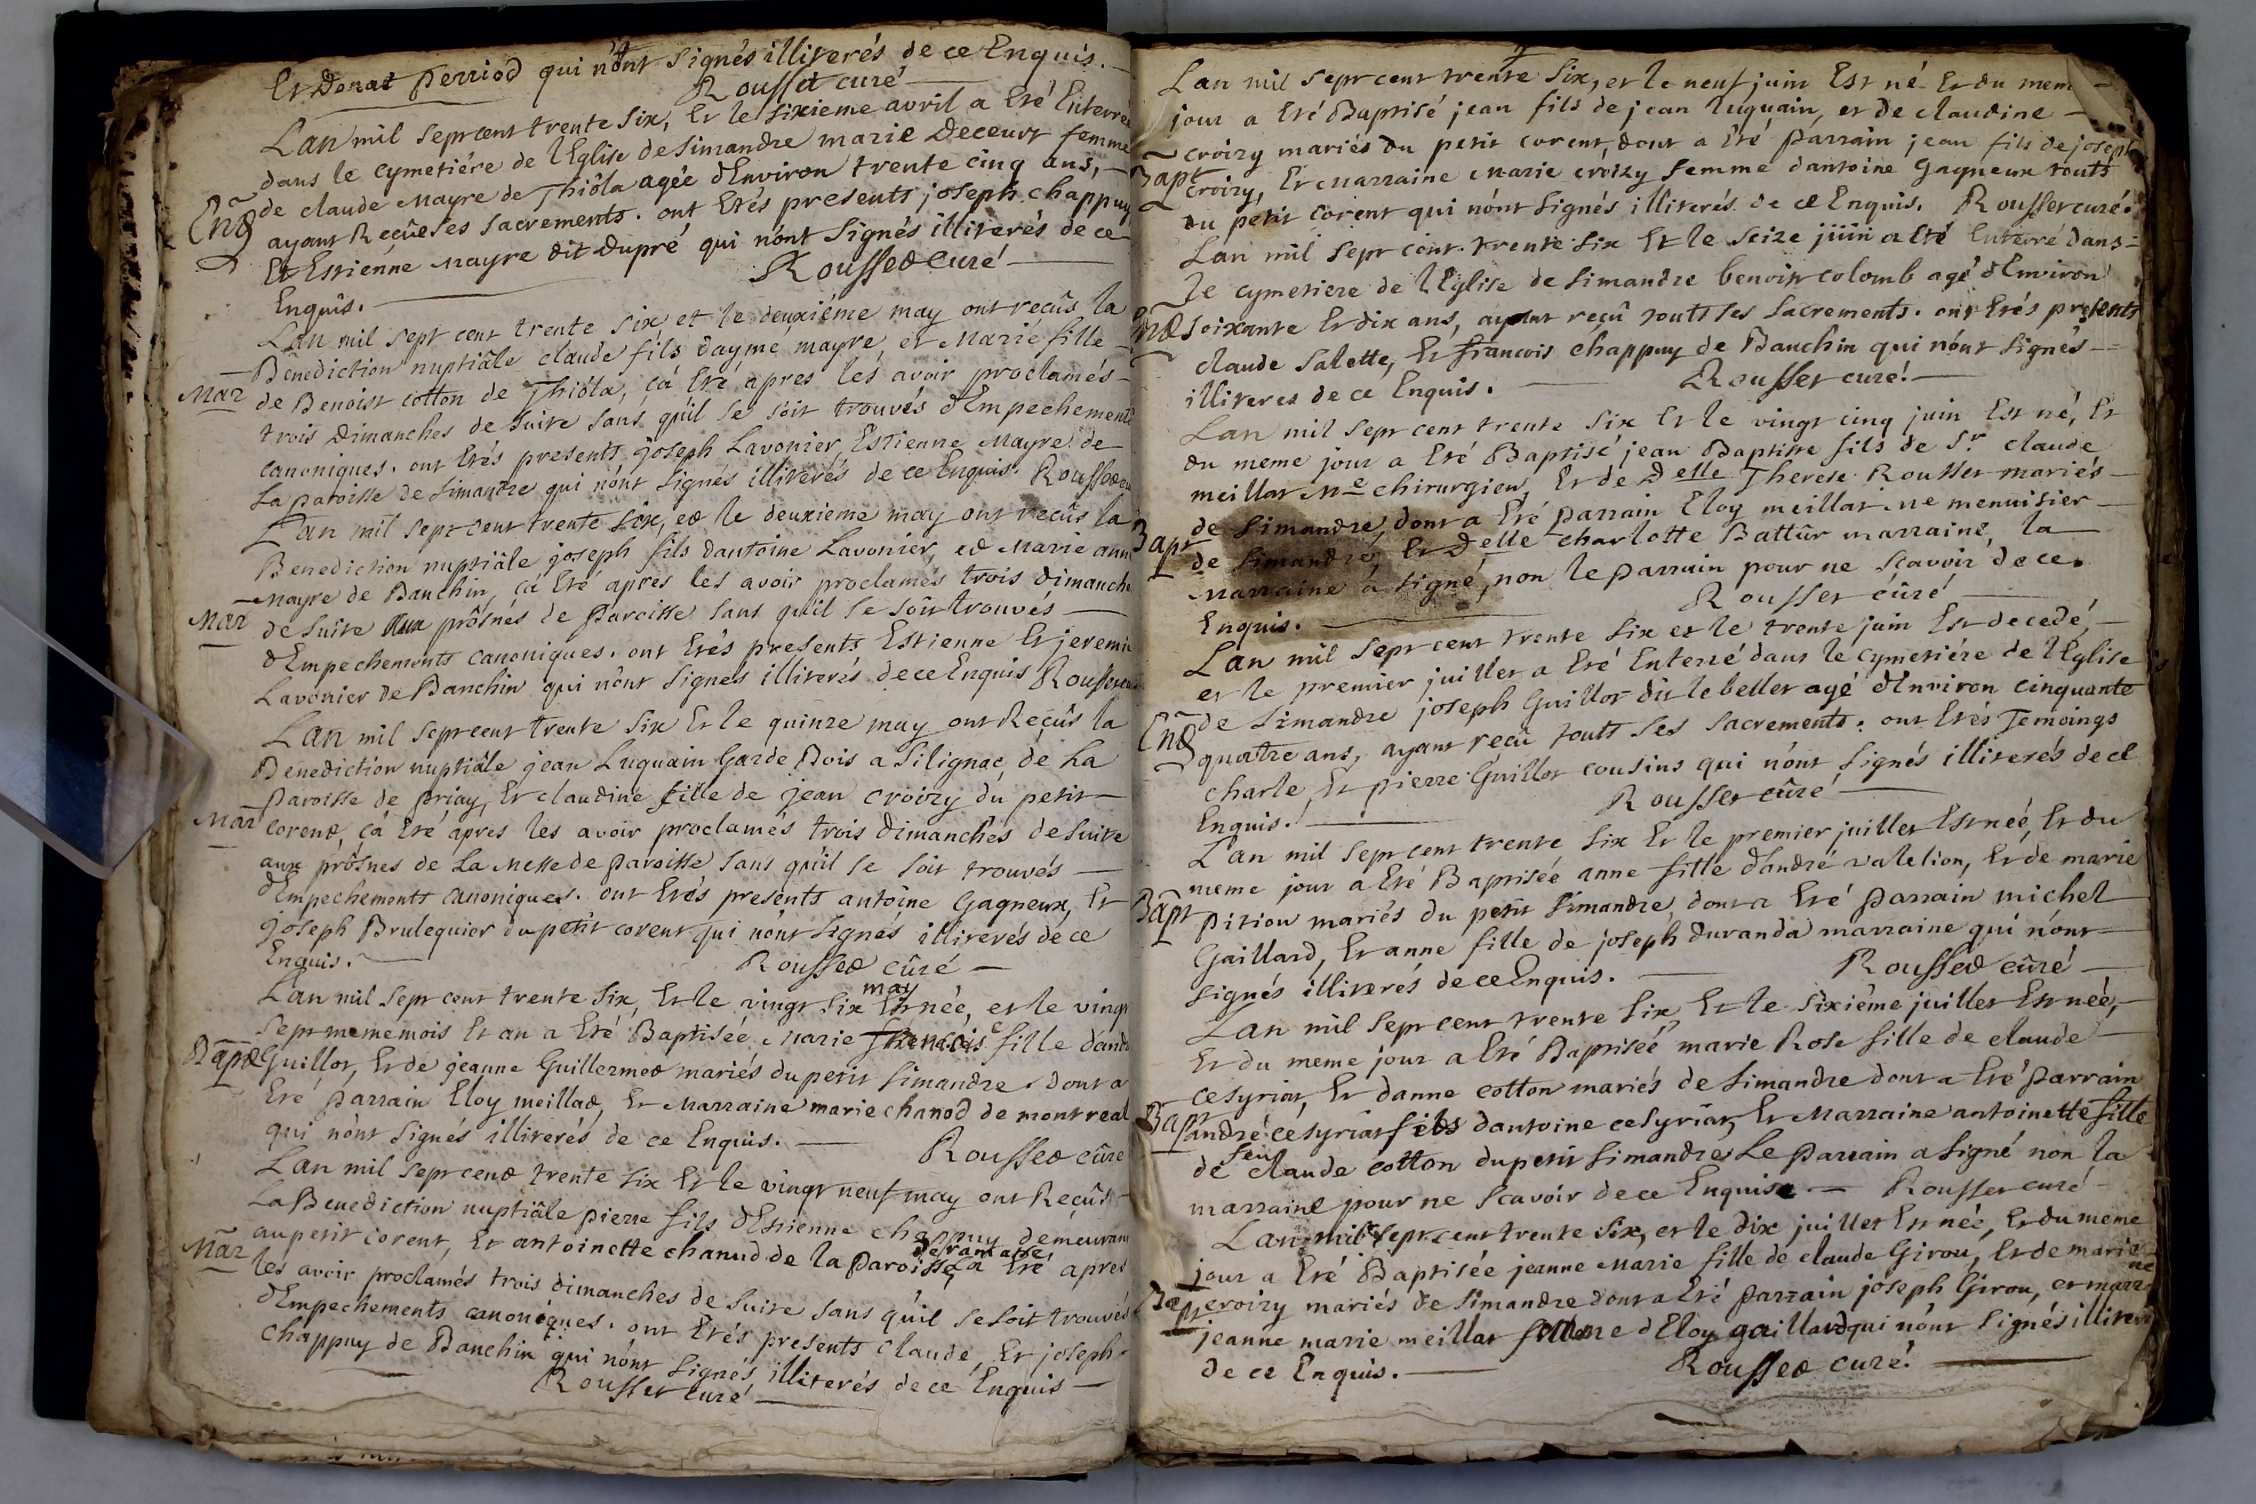 Et Donat perriod qui n'ont signés illiterés de ce Enquis.
Rousset curé
Lan mil sept cent trente six, Et le sixieme avril a Eté Enterrée
dans le cymetiére de l'Eglise de simandre marie Deceurt femme
de claude mayre de Thióla agée d'Environ trente cinq ans,
Ent
ayant Recûe ses sacrements. ont Etés presents joseph chappuy
Et Estienne mayre dit dupré qui n'ont signés illiterés de ce
Enquis.
Rousset curé
Lan mil sept cent trente six et le deuxiéme may ont recûs la
Benediction nuptiâle claude fils d'ayme mayre, et Marie fille
Mar
de Benoist cotton de Thióla, ça Eté apres les avoir proclamés
trois Dimanches de suite sans qu'il se soit trouvés d'Empechements
canoniques. ont Etés presents joseph Lavonier, Estienne Mayre de
La paroisse de simandre qui n'ont signés illiterés de ce Enquis. Rousset cu
Lan mil sept cent trente six, et le deuxieme may ont recûs la
Benediction nuptiâle joseph fils d'antoine Lavonier, et Marie anne
mayre de Banchin, ça Eté apres les avoir proclamés trois dimanche
Mar
de suite aux prônes de Paroisse sans qu'il se soit trouvés
d'Empechements canoniques. ont Etés presents Estienne Et jeremie
Lavonier de Banchin qui n'ont signés illiterés de ce Enquis Rousset cu
Lan mil sept cent trente six Et le quinze may ont Reçûs la
Benediction nuptiâle jean Luquain Garde Bois a Silignac de La
Paroisse de priay, Et claudine fille de jean croizy du petit
Mar
corent, ça Eté apres les avoir proclamés trois Dimanches de suite
aux prônes de La Messe de paroisse sans qu'il se soit trouvés
d'Empechements canoniques. ont Etés presents antoine Gagneux, Et
joseph Brulequier du petit corent qui n'ont signés illiterés de ce
Enquis.
Rousset cûré
may
Lan mil sept cent trente six, Et le vingt six Est née, et le vingt
sept meme mois Et an a Eté Baptisée Marie francoise fille d'andre
Bapt
Guillot, Et de jeanne Guillermet mariés du petit simandre. dont a
Eté parrain Eloy meillat, Et Marraine marie chanod de montreal
qui n'ont signés illiterés de ce Enquis.
Rousset cûre
Lan mil sept cent trente six Et le vingt neuf may ont Reçûs
La Benediction nuptiâle pierre fils d'Estienne chappuy demeurant
au petit corent, Et antoinette chanud de la Paroisse ça Eté apres
Mar
les avoir proclamés trois dimanches de suite sans qu'il se soit trouvés
d'Empechements canoniques. ont Etés presents claude, Et joseph
chappuy de Banchin qui n'ont signés illiterés de ce Enquis
Rousset curé
Lan mil sept cent trente six, et le neuf juin Est né Et du meme
jour a Eté Baptisé jean fils de jean luquain, et de claudine
croizy mariés du petit corent, dont a Eté parrain jean fils de joseph
Bapt
croizy, Et Marraine Marie croizy femme d'antoine Gagneux touts
du petit corent qui n'ont signés illiterés de ce Enquis. Rousset curé.
Lan mil sept cent trente six Et le seize juin a Eté Enterré dans
le cymetiere de l'Eglise de simandre benoist colomb agé d'Environ
Ent
soixante Et dix ans, ayant reçû touts ses sacrements. ont Etés presents
claude Salette, Et francois chappuy de Banchin qui n'ont signés
illiteres de ce Enquis.
Rousset curé
Lan mil sept cent trente six Et le vingt cinq juin Est né, Et
du meme jour a Eté Baptisé jean Baptiste fils de Sr. claude
meillat Me chirurgien, Et de Delle Therese Rousset mariés
de simandre, dont a Eté parrain Eloy meillat me menuisier
Bapt
de simandre, Et Delle charlotte Battûr marraine, la
marraine a signé, non le parrain pour ne scavoir de ce
Enquis.
Rousset cûré
Lan mil sept cent trente six et le trente juin Est decedé,
et le premier juillet a Eté Enterré dans le cymetiére de l'Eglise
de simandre joseph Guillot dit le bellet agé d'Environ cinquante
Ent
quatre ans, ayant reçû touts ses sacrements. ont Etés Temoings
charle, Et pierre Guillot cousins qui n'ont signés illiterés de ce
Enquis.
Rousset cûré
Lan mil sept cent trente six Et le premier juillet Est neé, Et du
meme jour a Eté Baptisée anne fille d'andré valetion, Et de marie
Bapt
pition mariés du petit simandre, dont a Eté parrain michel
Gaillard, Et anne fille de joseph duranda marraine qui n'ont
signés illiterés de ce Enquis.
Rousset cûré
Lan mil sept cent trente six Et le sixiéme juillet Est neé,
Et du meme jour a Eté Baptiseé marie Rose fille de claude
cesyriat, Et d'anne cotton mariés de simandre dont a Eté parrain
Bapt
andré cesyriat fils d'antoine cesyriat, Et Marraine antoinette fille
de feu claude cotton du petit simandre. Le parrain a signé non la
marraine pour ne scavoir de ce Enquise. Rousset curé
Lan mil sept cent trente six, et le dix juillet Est née, Et du meme
jour a Eté Baptisée jeanne Marie fille de claude Girou, Et de marie
Bapt
croizy mariés de simandre dont a Eté parrain joseph Girou, et marrne
jeanne marie meillat femme d'Eloy gaillard qui n'ont signés illiterés
de ce Enquis.
Rousset curé.